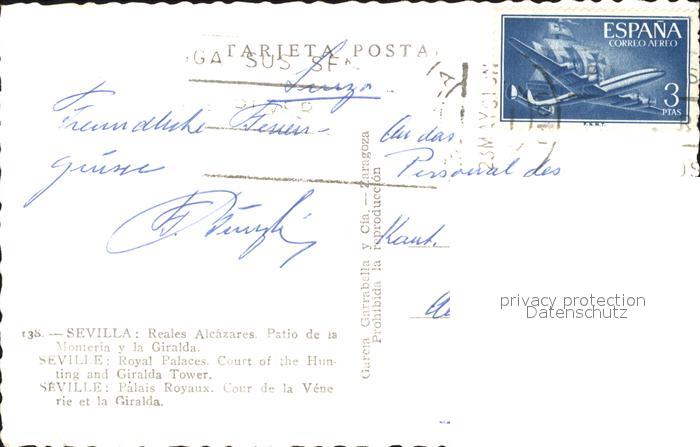 TARJETA POSTA
ESPAÑA
CORREO AEREO
3
PTAS
F.N.M.T.
GA SUS SE
23MAY61
Suiza
Freundliche Ferien-
grüsse
An das
Personal des
Kant.
García Garrabella y Cía.—Zaragoza
Prohibida la reproducción
138. — SEVILLA: Reales Alcázares. Patio de la
Montería y la Giralda.
SEVILLE: Royal Palaces. Court of the Hun-
ting and Giralda Tower.
SÉVILLE: Palais Royaux. Cour de la Véne
rie et la Giralda.
privacy protection
Datenschutz